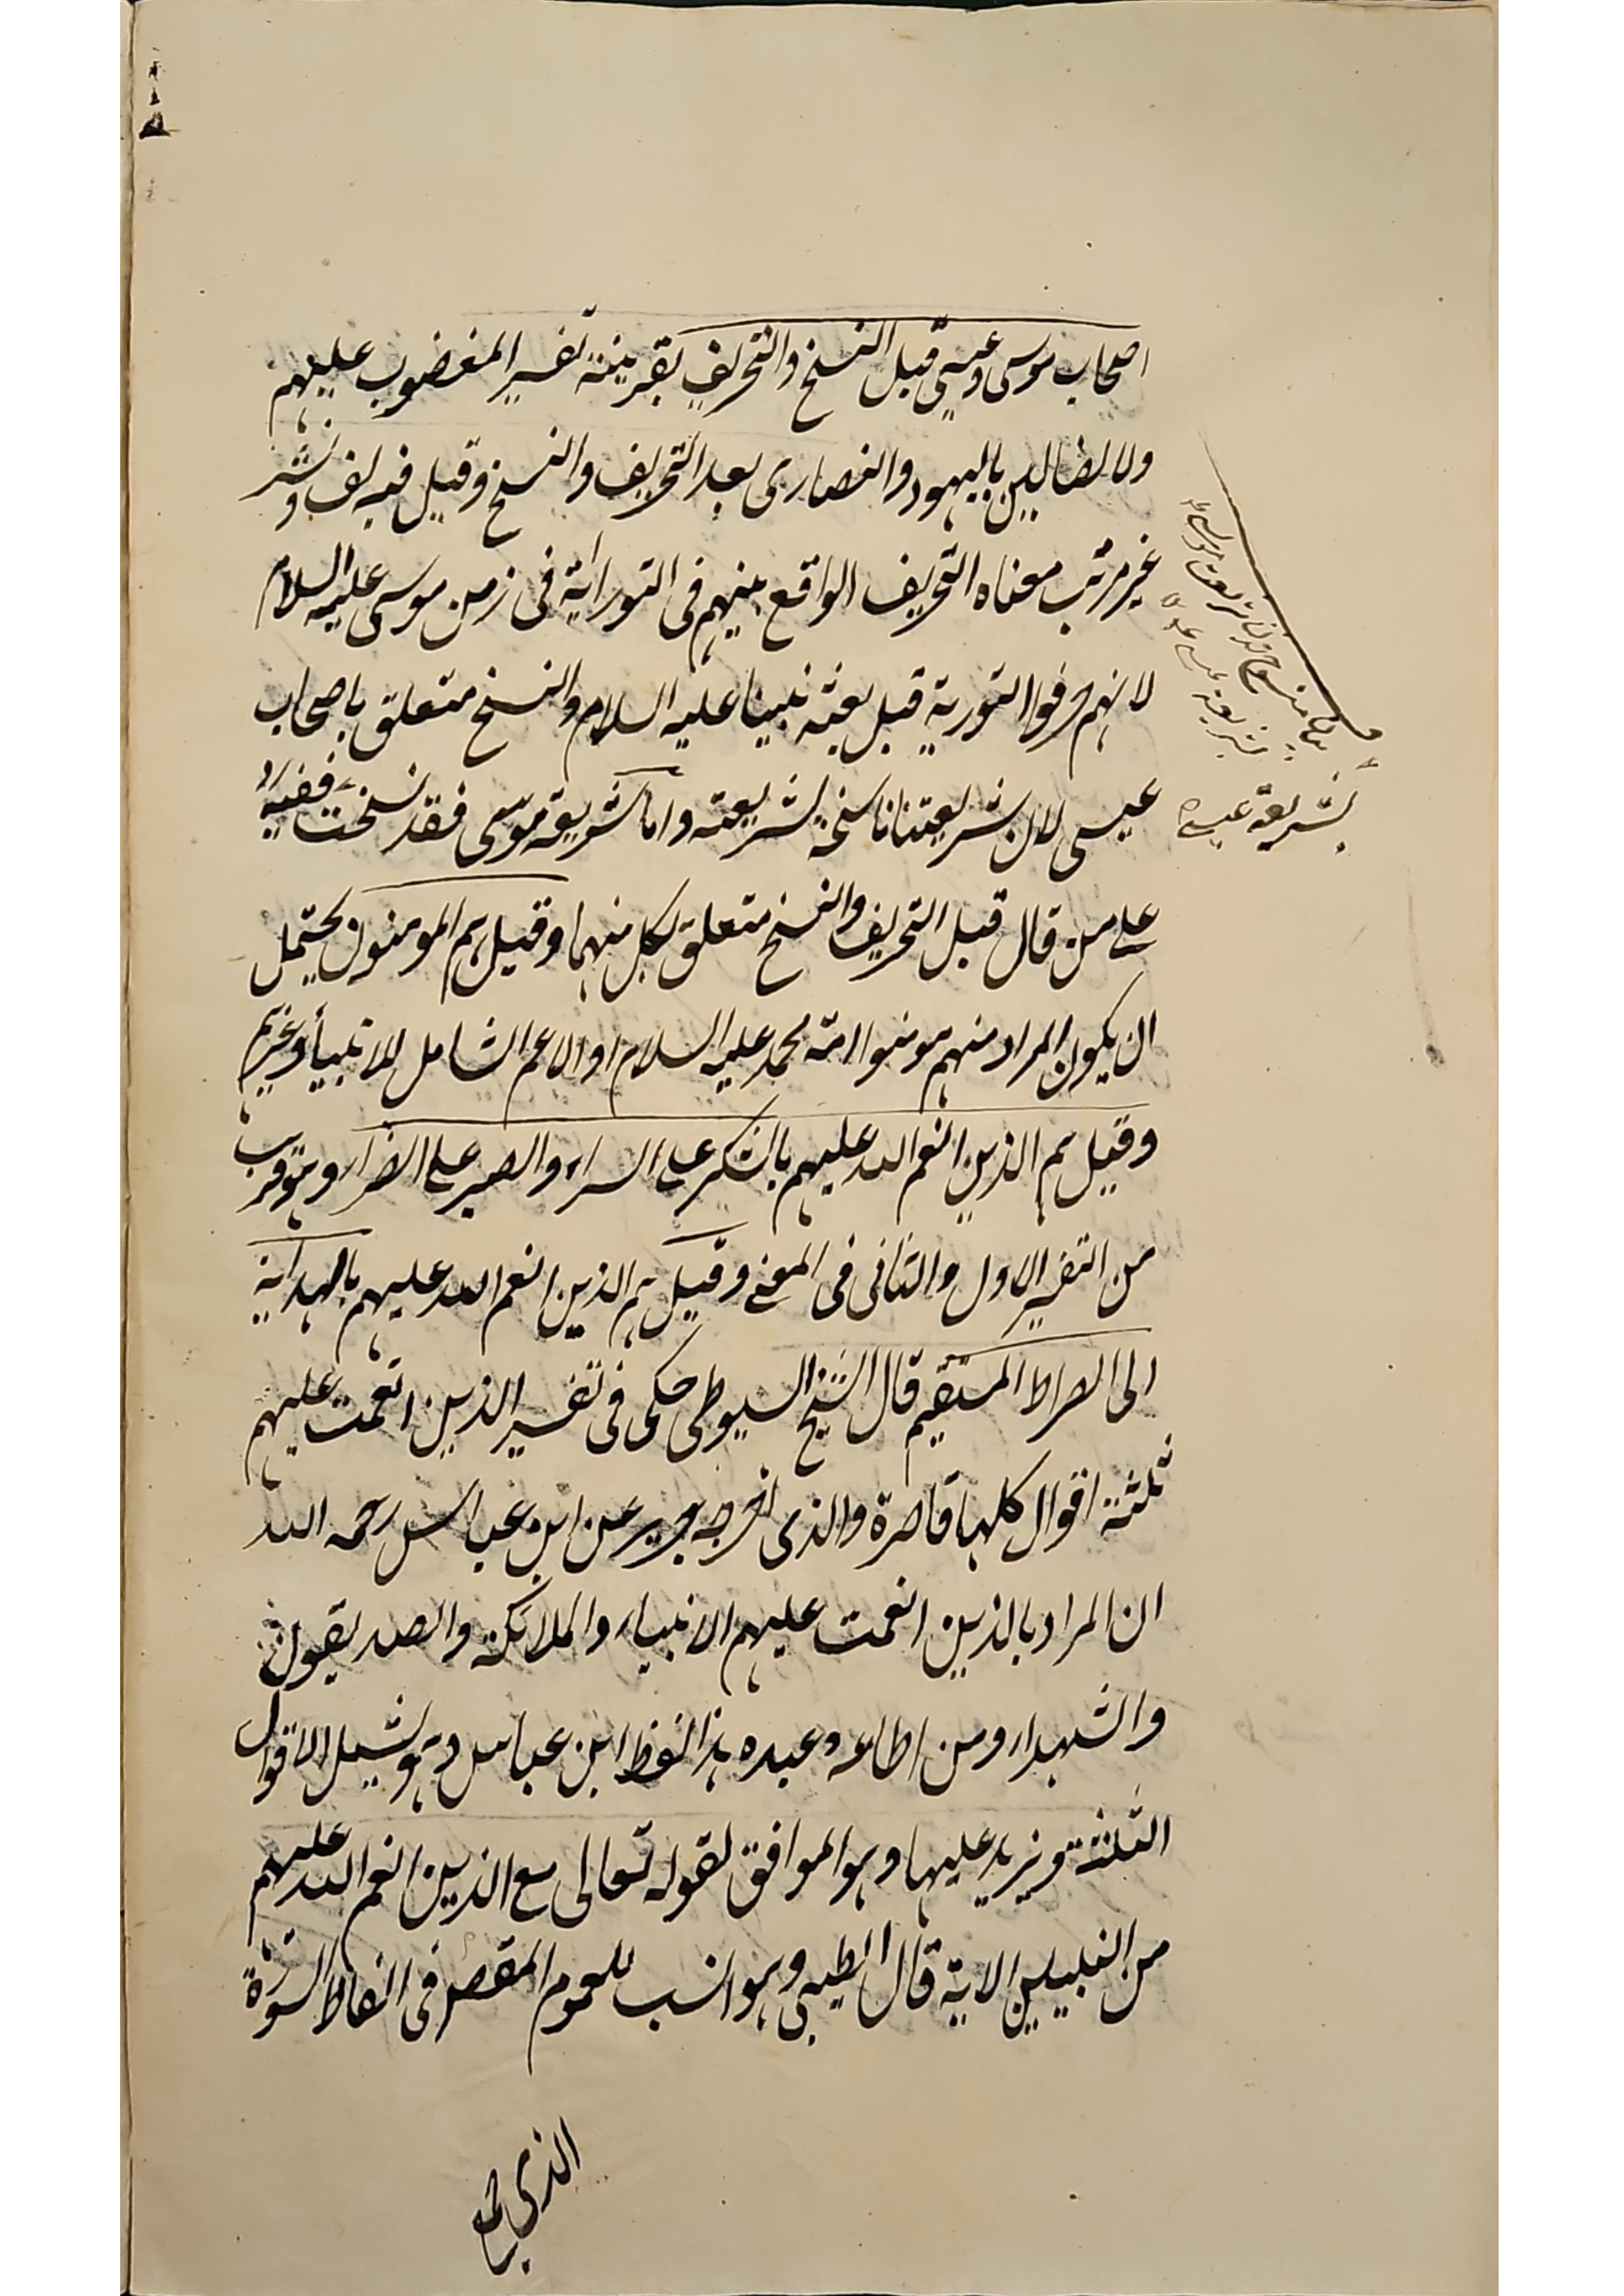 اصحاب موسى وعيسى قبل النسخ والتحريف بقرينة تفسير المغضوب عليهم
ولا الضالين باليهود والنصارى بعد التحريف والنسخ وقيل فيه لف ونشر
غير مرتب معناه التحريف الواقع منهم فى التوراية فى زمن موسى عليه السلام
لانهم حرفوا التورية قبل بعثه نبينا عليه السلام والنسخ متعلق باصحاب
عيسى لان شريعتنا ناسخة لشريعته واما شريعة موسى فقد نسخت ففيه رد
بشريعة عيسى
على من قال قبل التحريف والنسخ متعلق بكل منهما وقيل هم المومنون يحتمل
ان يكون المراد منهم مومنوا امة محمد عليه السلام او الاعم الشامل للانبيأ وغيرهم
وقيل هم الذين انعم الله عليهم بالشكر على السراء والصبر على الضراء وهو قريب
من التفسير الاول والثانى فى المعنى وقيل هم الذين انعم الله عليهم بالهداية
الى الصراط المستقيم قال الشيخ السيوطى حكى فى تفسير الذين انعمت عليهم
ثلثة اقوال كلها قاصرة والذى اخرجه جرير عن ابن عباس رحمه الله
ان المراد بالذين انعمت عليهم الانبياء والملائكة والصديقون
والشهداء ومن اطاعه وعبده هذا لفظ ابن عباس وهو يشمل الاقوال
الثلثة ويزيد عليها وهو الموافق لقوله تعالى مع الذين انعم الله عليهم
من النبيين الاية قال الطيبى وهو انسب للعموم المقصر فى الفاظ السورة
الذى